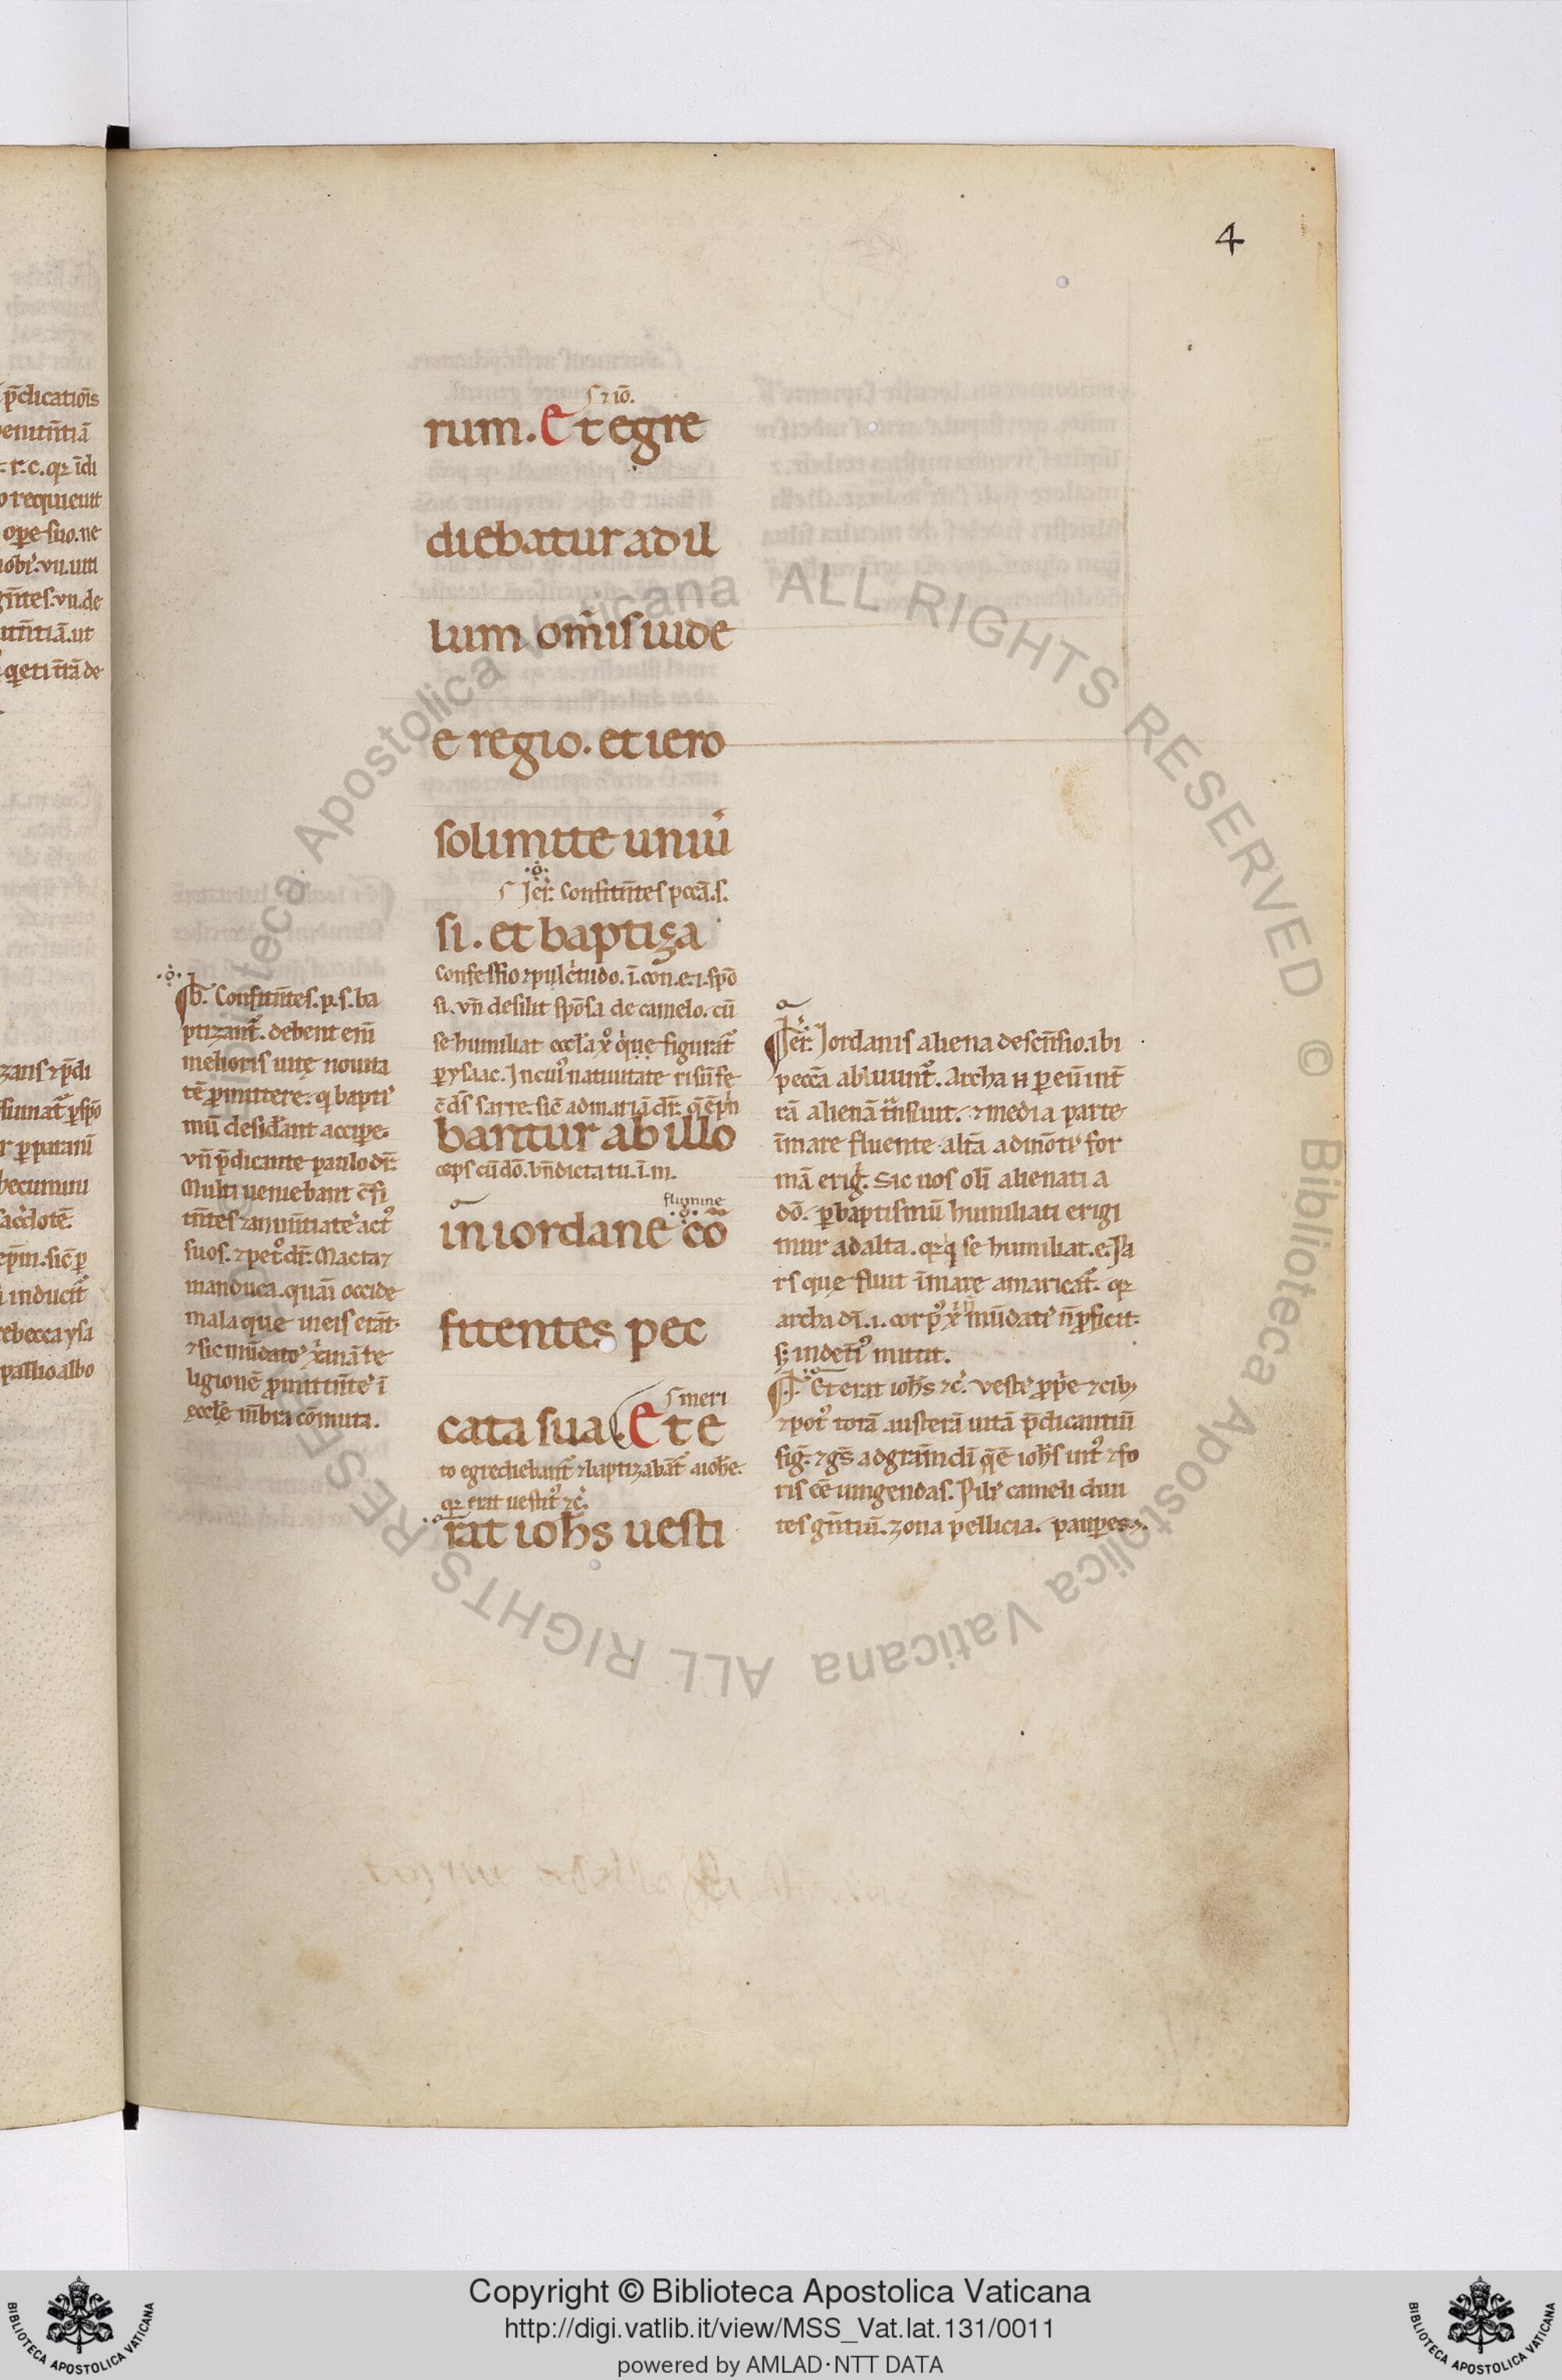 4
p̄dicatiōis
r̄.c. qr īdi
oꝑe suo. ne
.vii. de
ꝗeti īrā de
ſ ⁊ iō.
rum. Et egre
diebatur ad il
lum om̄is iude
e regio. et iero
solimite uniū
Jer̄. Confitn̄tes pccā. s.
si. et baptiza
Confessio ⁊ pulc̄tudo. ī. con. e. i. spō
si. vn̄ desilit spōsa de camelo. cū
se humiliat eccl̄a xͦ. que figurat᷑
ꝑ ysaac. In cuiꝰ natiuitate risū fe
c̄ ds̄ sarre. sic̄ ad mariā dr̄. q̄ c̄pn̄
bantur ab illo
ceps cū dō. bn̄dicta tu. ī. m.
flumine
in iordane cō
fitentes pec
ſ meri
cata sua. Et e
to egrediebant᷑ ⁊ baptizabāt᷑ a ioh̄e.
qr erat uestitꝰ ⁊c̄.
rat ioh̄s uesti
b. Confitn̄tes. p. s. ba
ptizant᷑. debent eni̅
melioris uitę nouita
tē ꝓmittere. qi bapti
mū desid̄ant accipe.
vn̄ p̄dicante paulo dr̄.
Multi ueniebant c̄fi
tn̄tes ⁊ anun̄tiāte actꝰ
suos. ⁊ petͦ dr̄. Macta ⁊
manduca. quasi occide
mala que in eis erāt.
⁊ sic mūdatoˢ x̄ianā re
ligionē ꝓmittn̄te ī
eccl̄e m̄bra cōmuta.
Jer̄. Jordanis aliena descn̄sio. ibi
peccā abluunt᷑. Archa n̄ ꝑ eū int᷑
rā alienā tn̄siuit. ⁊ media parte
ī mare fluente. altā ad mōtꝭ for
mā erig᷑. Sic nos olī alienati a
dō. ꝑ baptismū humiliati erigi
mur ad alta. qr qͥ se humiliat. e. Pa
rs que fluit ī mare amaricat᷑. qr
archa dī. i. corpꝰ x̄ī mūdatꝭ n̄ ꝓficit.
sꝫ in det̄iꝰ mittit.
Et erat ioh̄s ⁊c̄. veste ꝓpe ⁊ cibꝫ
⁊ potꝰ totā austerā uitā p̄dicantiū
sig᷑. ⁊ gn̄s ad gr̄am dī q̄ ē ioh̄s intꝰ ⁊ fo
ris ēē iungendas. Pili cameli diui
tes gn̄tiū. zona pellicia. pauꝑes.
Copyright © Biblioteca Apostolica Vaticana
http://digi.vatlib.it/view/MSS_Vat.lat.131/0011
powered by AMLAD·NTT DATA
BIBLIOTECA APOSTOLICA VATICANA
BIBLIOTECA APOSTOLICA VATICANA
© Biblioteca Apostolica Vaticana ALL RIGHTS RESERVED © Biblioteca Apostolica Vaticana ALL RIGHTS RESE